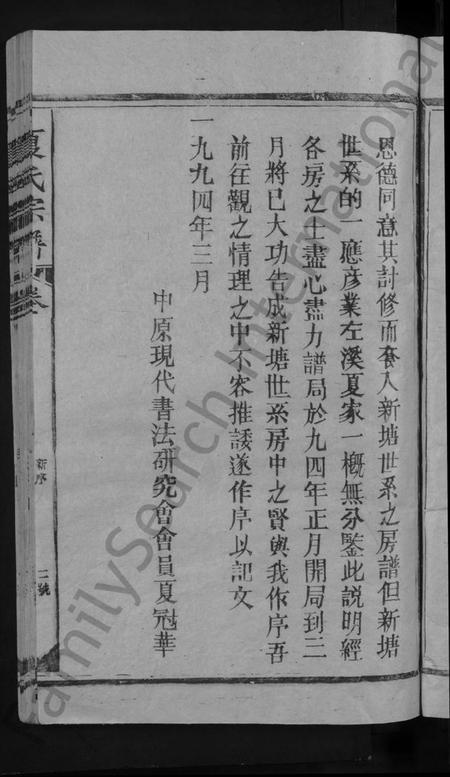 恩德同意其討修而套入新塘世系之房譜但新塘
世系的一應彦業左溪夏家一概無分鑒此説明經
各房之士盡心盡力譜局於九四年正月開局到三
月將已大功告成新塘世系房中之賢與我作序吾
前往觀之情理之中不容推諉遂作序以記文
一九九四年三月
中原現代書法研究會會員夏冠華
夏氏宗譜 卷
新序
二號
FamilySearch International